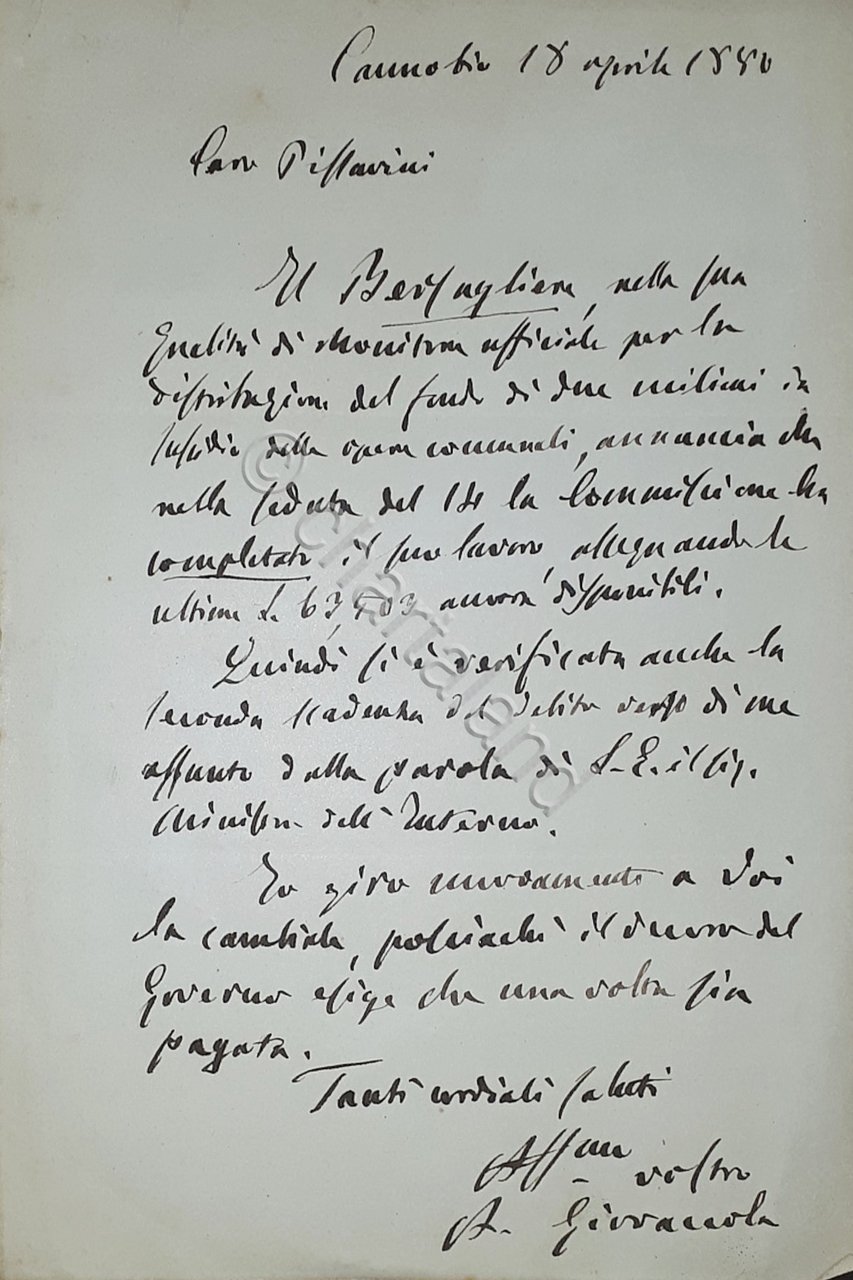 Cannobio 18 aprile 1880
Caro Pissavini
Il Bersagliere, nella sua
qualità di Monitore ufficiale per la
distribuzione del fondo di due milioni in
sussidio delle opere comunali, annuncia che
nella seduta del 14 la Commissione ha
completato il suo lavoro, assegnando le
ultime L. 63,503 ancora disponibili.
Quindi si è verificata anche la
seconda scadenza del debito verso di me
assunto dalla parola di S. E. il sig.
Ministro dell'Interno.
Io giro nuovamente a Voi
la cambiale, posciachè il decoro del
Governo esige che una volta sia
pagata.
Tanti cordiali saluti
Affmo vostro
A. Giovanola
© chartaland